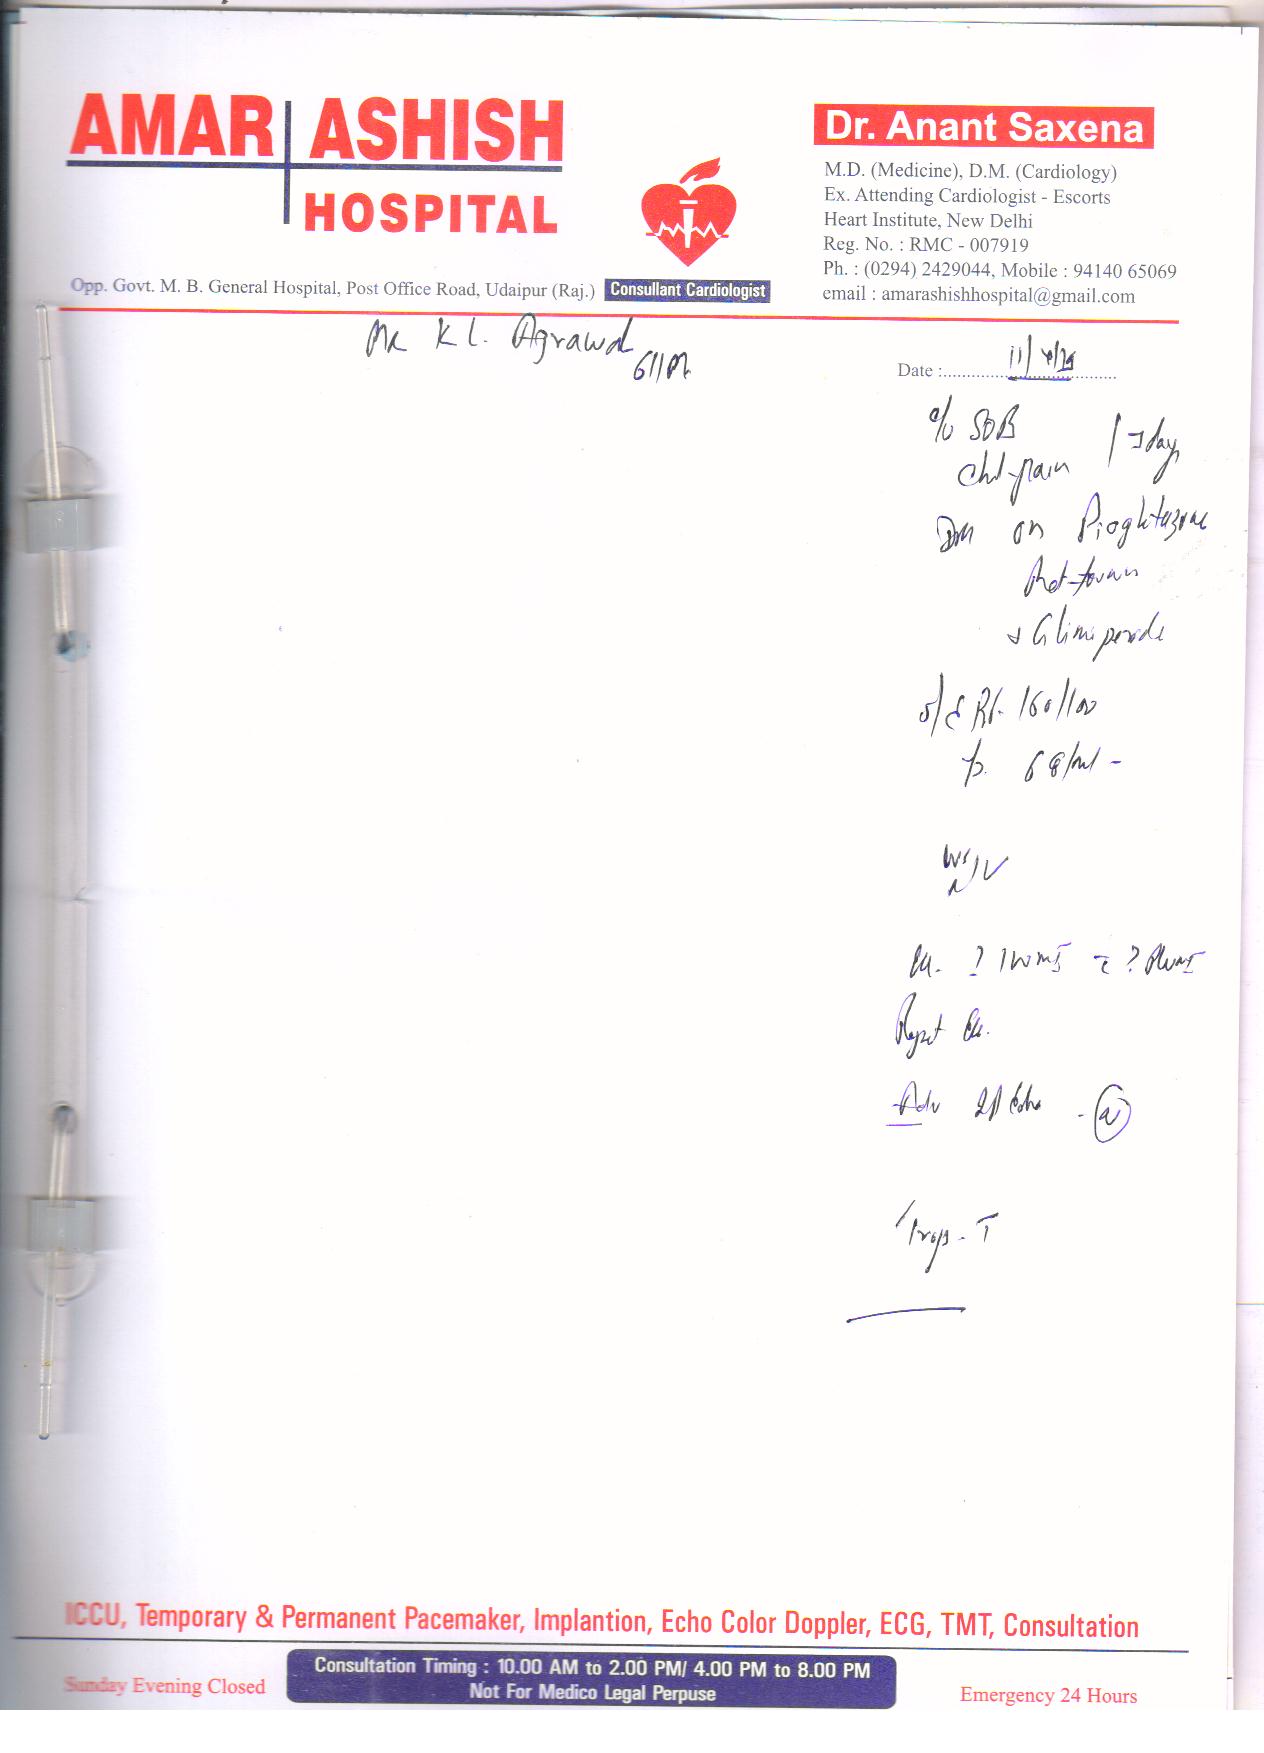 AMAR ASHISH
HOSPITAL
Dr. Anant Saxena
M.D. (Medicine), D.M. (Cardiology)
Ex. Attending Cardiologist - Escorts
Heart Institute, New Delhi
Reg. No. : RMC - 007919
Ph. : (0294) 2429044, Mobile : 94140 65069
email : amarashishhospital@gmail.com
Opp. Govt. M. B. General Hospital, Post Office Road, Udaipur (Raj.)
Consullant Cardiologist
Mr K L. Agrawal
61/M
Date :
c/o SOB
pain
DM on Pioglitazone
+ Glimeperide
o/e 160/100
p. 68/
Adv 2D Echo
Trop - T
ICCU, Temporary & Permanent Pacemaker, Implantion, Echo Color Doppler, ECG, TMT, Consultation
Sunday Evening Closed
Consultation Timing : 10.00 AM to 2.00 PM/ 4.00 PM to 8.00 PM
Not For Medico Legal Perpuse
Emergency 24 Hours